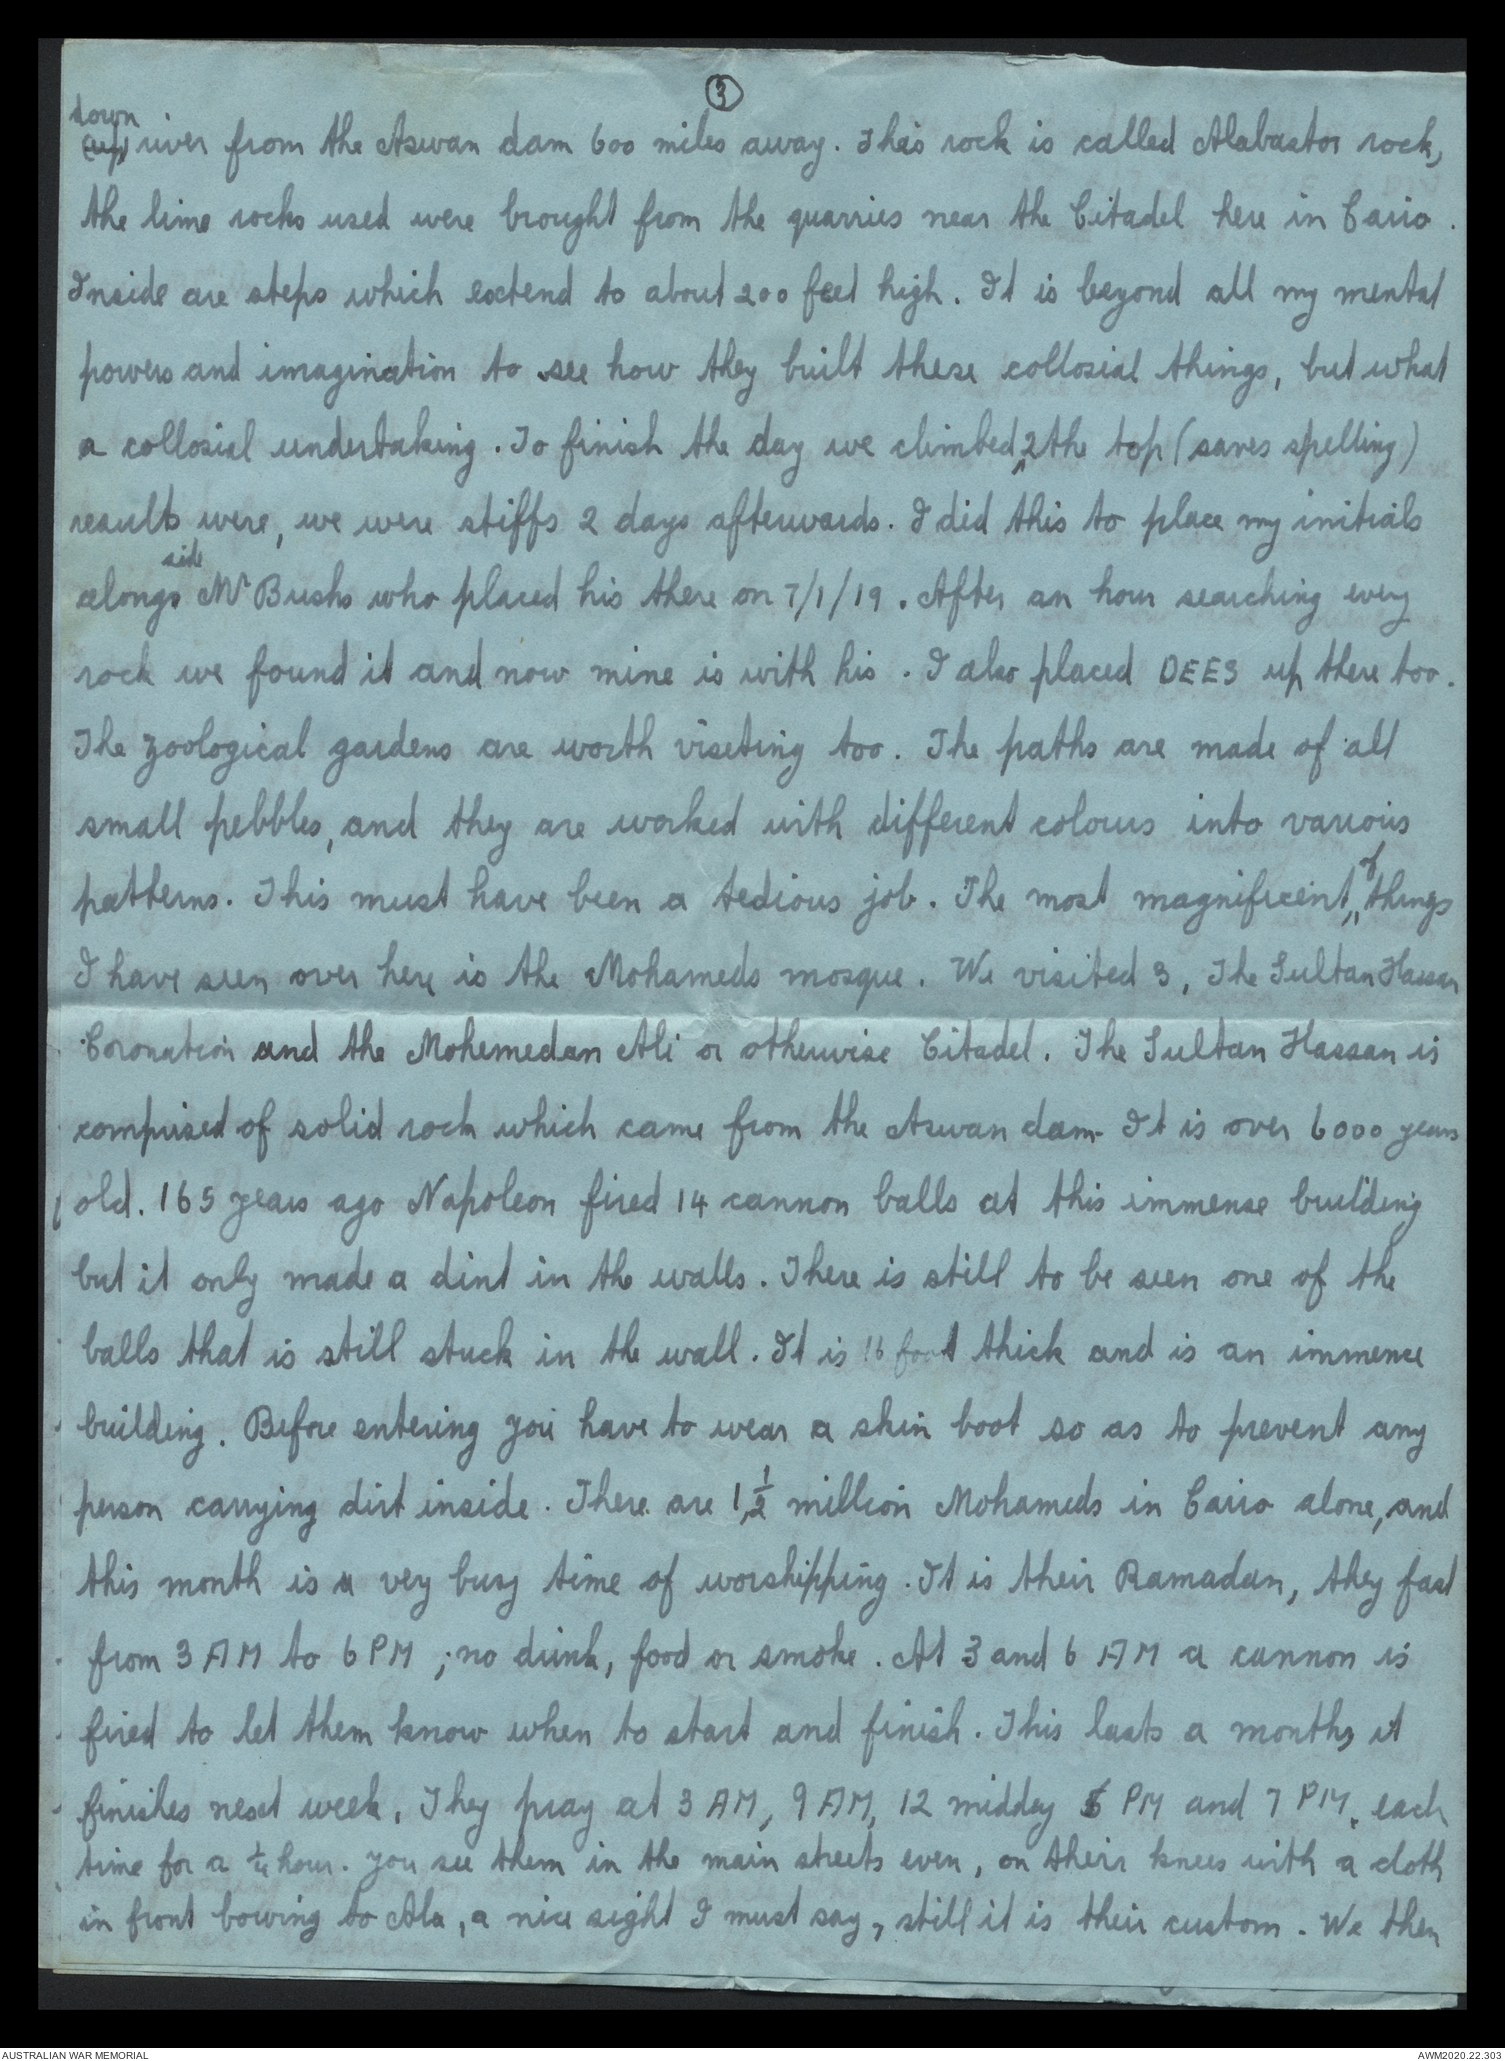 3
down
(up) river from the Aswan dam 600 miles away. This rock is called Alabastor rock,
the lime rocks used were brought from the quarries near the Citadel here in Cairo.
Inside are steps which extend to about 200 feet high. It is beyond all my mental
powers and imagination to see how they built these collosial things, but what
a collosial undertaking. To finish the day we climbed 2 the top (saves spelling)
results were, we were stiffs 2 days afterwards. I did this to place my initials
side
alongs Mr Bushs who placed his there on 7/1/19. After an hour searching every
rock we found it and now mine is with his. I also placed DEES up there too.
The zoological gardens are worth viseting too. The paths are made of all
small pebbles, and they are worked with different colours into various
of
patterns. This must have been a tedious job. The most magnificent, things
I have seen over here is the Mohameds mosque. We visited 3, The Sultan Hassan
Coronation and the Mohemedan Ali or otherwise Citadel. The Sultan Hassan is
comprised of solid rock which came from the Aswan dam. It is over 6000 years
old. 165 years ago Napoleon fired 14 cannon balls at this immense building
but it only made a dint in the walls. There is still to be seen one of the
balls that is still stuck in the wall. It is 16 foot thick and is an immence
building. Before entering you have to wear a skin boot so as to prevent any
person carrying dirt inside. There are 1,½ million Mohameds in Cairo alone, and
this month is a very busy time of worshipping. It is their Ramadan, they fast
from 3 AM to 6 PM ; no drink, food or smoke. At 3 and 6 AM a cannon is
fired to let them know when to start and finish. This lasts a month, it
finishes next week. They pray at 3 AM, 9 AM, 12 midday 5 PM and 7 PM, each
time for a ¼ hour. You see them in the main streets even, on their knees with a cloth
in front bowing to Ala, a nice sight I must say, still it is their custom. We then
AUSTRALIAN WAR MEMORIAL
AWM2020.22.303